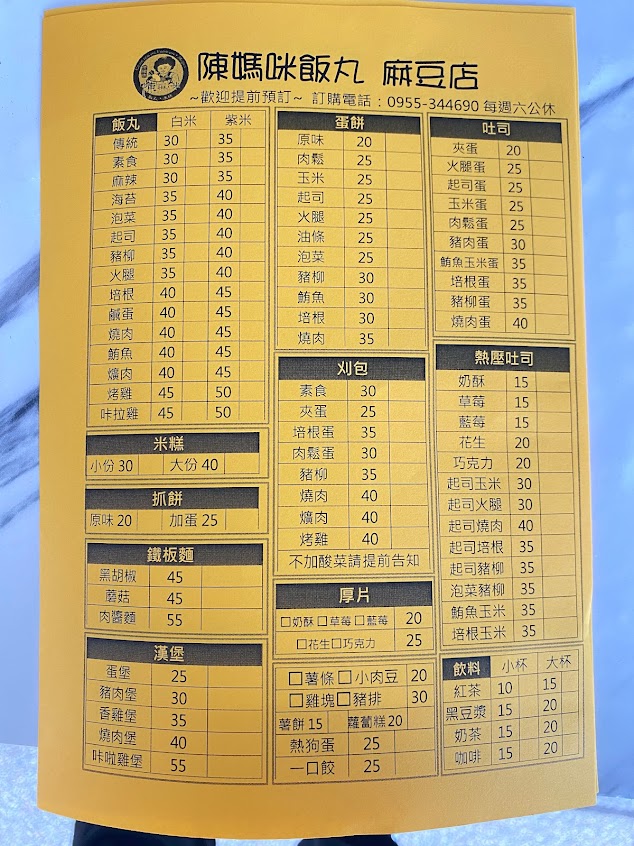 陳媽咪飯丸 麻豆店
~歡迎提前預訂~ 訂購電話：0955-344690 每週六公休
飯丸 白米 紫米
傳統 30 35
素食 30 35
麻辣 30 35
海苔 35 40
泡菜 35 40
起司 35 40
豬柳 35 40
火腿 35 40
培根 40 45
鹹蛋 40 45
燒肉 40 45
鮪魚 40 45
爌肉 40 45
烤雞 45 50
咔拉雞 45 50
米糕
小份 30 大份 40
抓餅
原味 20 加蛋 25
鐵板麵
黑胡椒 45
蘑菇 45
肉醬麵 55
漢堡
蛋堡 25
豬肉堡 30
香雞堡 35
燒肉堡 40
咔啦雞堡 55
蛋餅
原味 20
肉鬆 25
玉米 25
起司 25
火腿 25
油條 25
泡菜 25
豬柳 30
鮪魚 30
培根 30
燒肉 35
刈包
素食 30
夾蛋 25
培根蛋 35
肉鬆蛋 30
豬柳 35
燒肉 40
爌肉 40
烤雞 40
不加酸菜請提前告知
厚片
□奶酥□草莓□藍莓 20
□花生□巧克力 25
□薯條□小肉豆 20
□雞塊□豬排 30
薯餅 15 蘿蔔糕20
熱狗蛋 25
一口餃 25
吐司
夾蛋 20
火腿蛋 25
起司蛋 25
玉米蛋 25
肉鬆蛋 25
豬肉蛋 30
鮪魚玉米蛋 35
培根蛋 35
豬柳蛋 35
燒肉蛋 40
熱壓吐司
奶酥 15
草莓 15
藍莓 15
花生 20
巧克力 20
起司玉米 30
起司火腿 30
起司燒肉 40
起司培根 35
起司豬柳 35
泡菜豬柳 35
鮪魚玉米 35
培根玉米 35
飲料 小杯 大杯
紅茶 10 15
黑豆漿 15 20
奶茶 15 20
咖啡 15 20